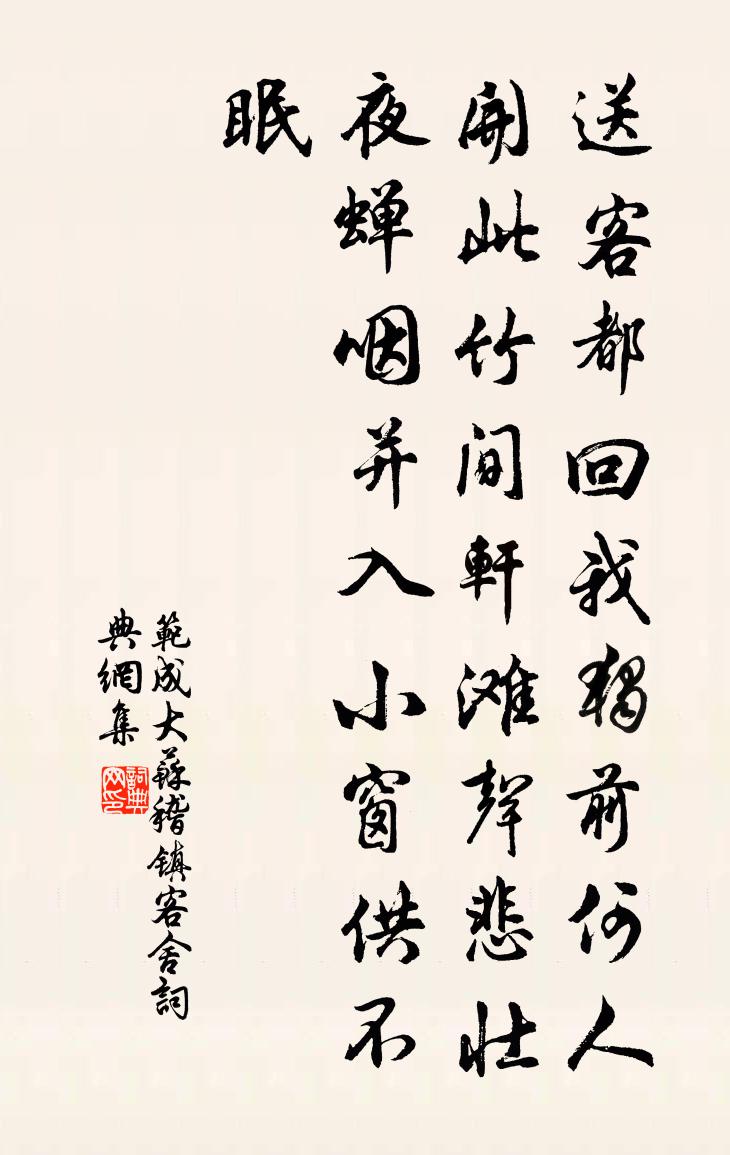 送客都回我獨前何人
開此竹間軒滩聲悲壮
夜蝉咽并入小窗供不
眠
範成大蘇稽镇客舍詞
典網集
詞典
网印